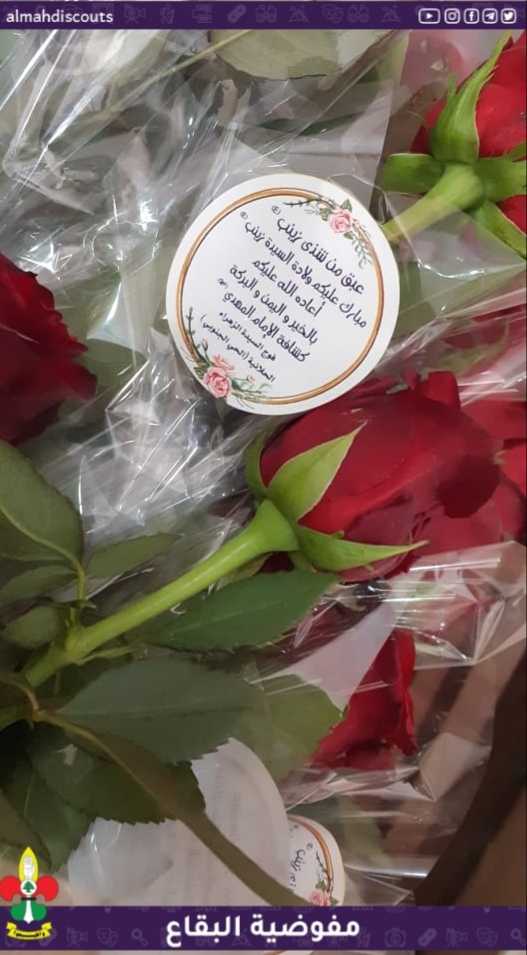 almahdiscouts
عبق من شذى زينب (ع)
مبارك عليكم ولادة السيدة زينب (ع)
أعاده الله عليكم
بالخير و اليمن و البركة
كشافة الإمام المهدي (عج)
فوج السيدة الزهراء
(الحي الجنوبي)
زينب (ع)
مفوضية البقاع